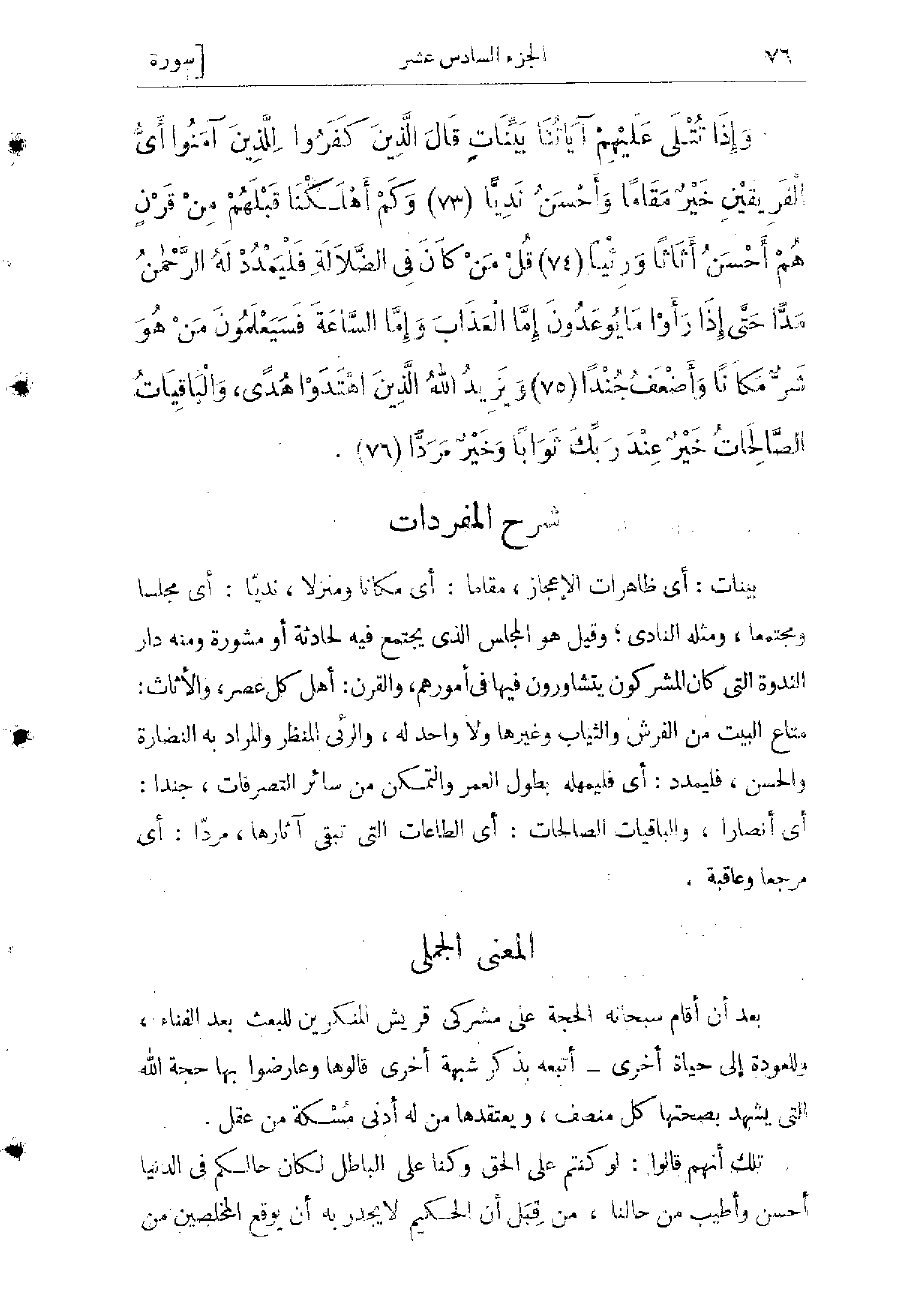 ٧٦ الجزء السادس عشر [سورة
وَإِذَا تُتْلَى عَلَيْهِمْ آيَاتُنَا بَيِّنَاتٍ قَالَ الَّذِينَ كَفَرُوا لِلَّذِينَ آمَنُوا أَىُّ
الْفَرِيقَيْنِ خَيْرٌ مَقَامًا وَأَحْسَنُ نَدِيًّا (٧٣) وَكَمْ أَهْلَكْنَا قَبْلَهُمْ مِنْ قَرْنٍ
هُمْ أَحْسَنُ أَثَاثًا وَرِئْيًا (٧٤) قُلْ مَنْ كَانَ فِى الضَّلَالَةِ فَلْيَمْدُدْ لَهُ الرَّحْمٰنُ
مَدًّا حَتَّى إِذَا رَأَوْا مَا يُوعَدُونَ إِمَّا الْعَذَابَ وَإِمَّا السَّاعَةَ فَسَيَعْلَمُونَ مَنْ هُوَ
شَرٌّ مَكَانًا وَأَضْعَفُ جُنْدًا (٧٥) وَيَزِيدُ اللهُ الَّذِينَ اهْتَدَوْا هُدًى، وَالْبَاقِيَاتُ
الصَّالِحَاتُ خَيْرٌ عِنْدَ رَبِّكَ ثَوَابًا وَخَيْرٌ مَرَدًّا (٧٦) .
شرح المفردات
بينات : أى ظاهرات الإعجاز ، مقاما : أى مكانا ومنزلا ، نديّا : أى مجلسا
ومجتمعا ، ومثله النادى ؛ وقيل هو المجلس الذى يجتمع فيه لحادثة أو مشورة ومنه دار
الندوة التى كان المشركون يتشاورون فيها فى أمورهم، والقرن: أهل كل عصر، والأثاث:
متاع البيت من الفرش والثياب وغيرها ولا واحد له ، والرئى المنظر والمراد به النضارة
والحسن ، فليمدد : أى فليمهله بطول العمر والتمكن من سائر التصرفات ، جندا :
أى أنصارا ، والباقيات الصالحات : أى الطاعات التى تبقى آثارها ، مردّا : أى
مرجعا وعاقبة .
المعنى الجملى
بعد أن أقام سبحانه الحجة على مشركى قريش المنكرين للبعث بعد الفناء ،
وللعودة إلى حياة أخرى – أتبعه بذكر شبهة أخرى قالوها وعارضوا بها حجة الله
التى يشهد بصحتها كل منصف ، ويعتقدها من له أدنى مُسْكة من عقل .
تلك أنهم قالوا : لو كنتم على الحق وكنا على الباطل لكان حالكم فى الدنيا
أحسن وأطيب من حالنا ، من قِبَل أن الحكيم لا يجدر به أن يوقع المخلصين من